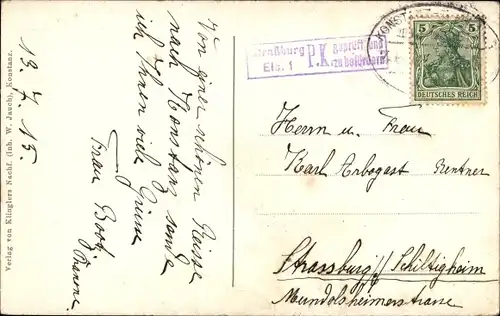 13. 7. 15.
Von einer schönen Reise
nach Konstanz sende
ich Ihnen viele Grüsse
Frau Bootz
Verlag von Klinglers Nachf. (Inh. W. Jauch), Konstanz.
Straßburg
Els. 1
P.K.
Geprüft und
zu befördern
KONST
5 5
DEUTSCHES REICH
Herrn u. Frau
Karl Arbogast Rentner
Strassburg // Schiltigheim
Mundolsheimerstrasse